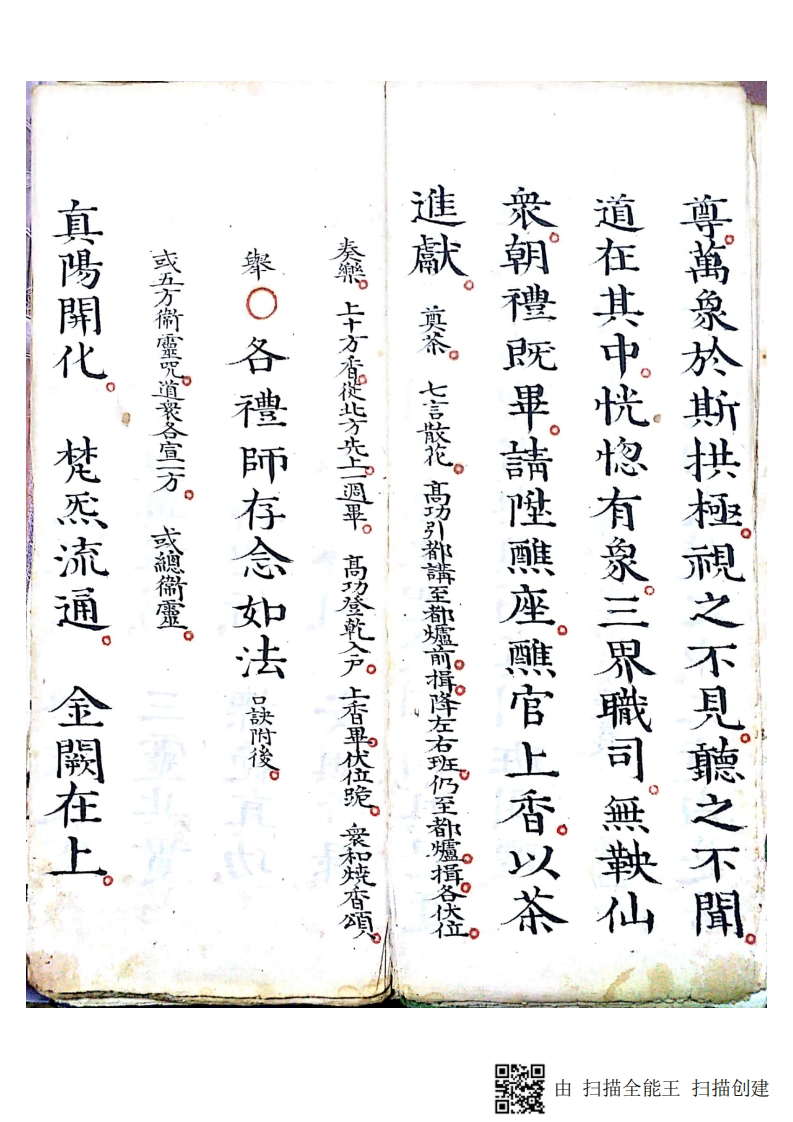 尊。萬象於斯拱極。視之不見。聽之不聞。
道在其中。恍惚有象。三界職司。無鞅仙
衆。朝禮既畢。請陞醮座。醮官上香。以茶
進獻。 奠茶。 七言散花。 高功引都講至都爐前。揖。降左右班。仍至都爐。揖。各伏位。
奏樂。 上十方香。從北方先上。一週畢。 高功登乾入戶。 上香畢。伏位跪。 衆和燒香頌。
舉〇各禮師存念如法 口訣附後。
或五方衞靈咒。道衆各宣一方。 或總衞靈。
真陽開化。 梵炁流通。 金闕在上。
由 扫描全能王 扫描创建